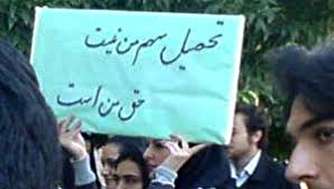 تحصیل سهم من نیست
حق من است